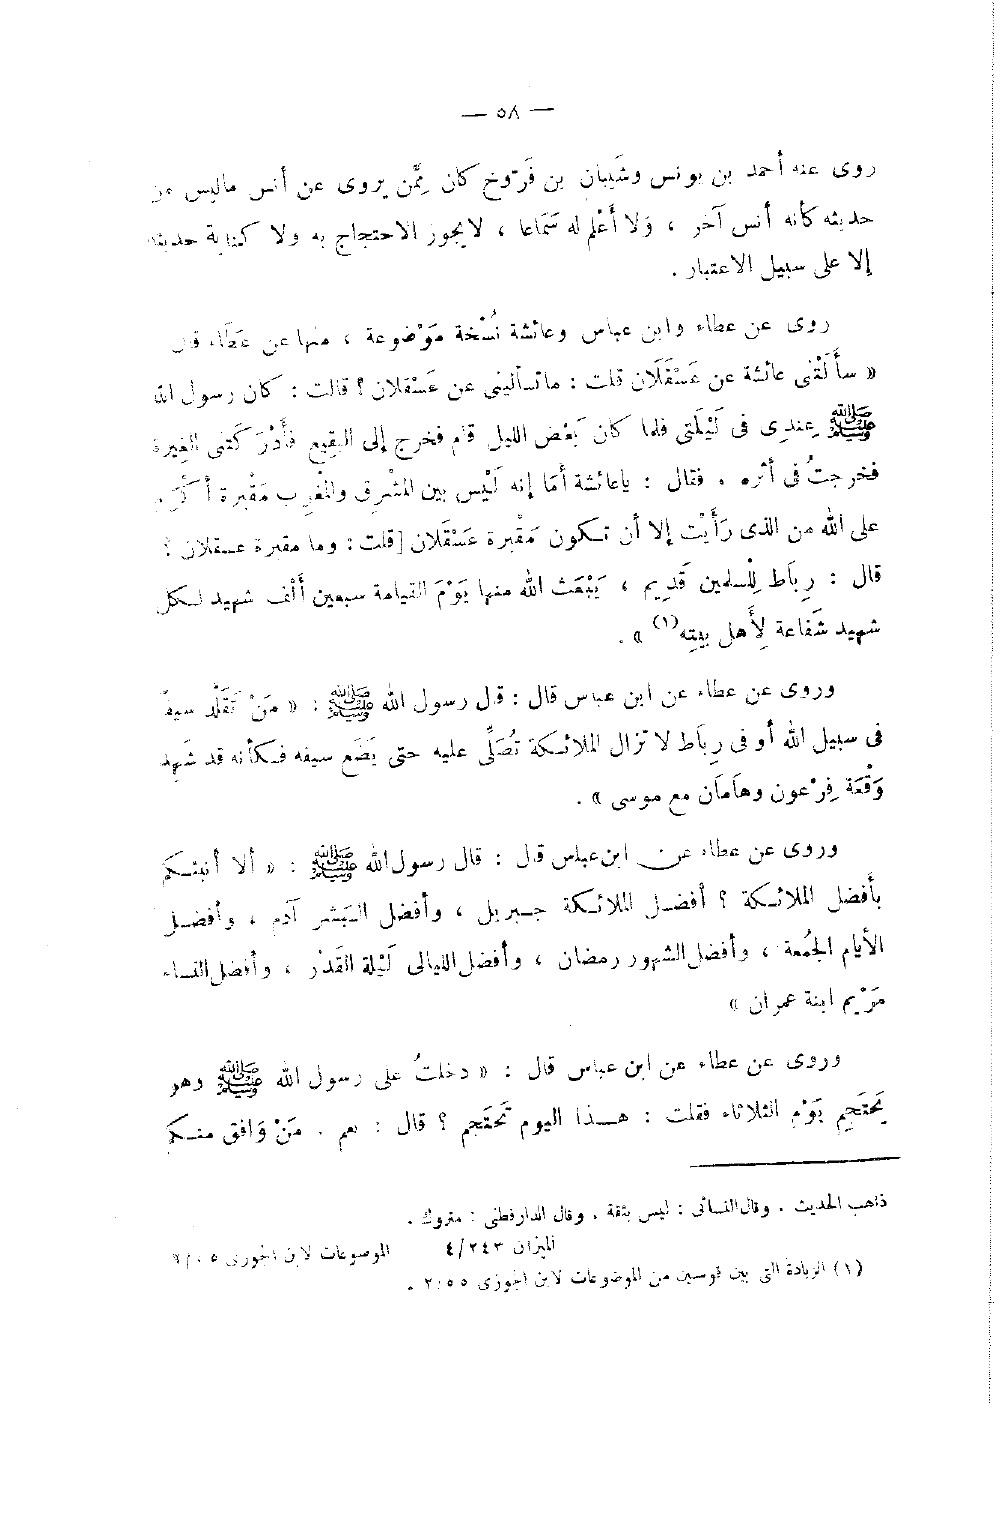 — ٥٨ —
روى عنه أحمد بن يونس وشَيبان بن فَرّوخ كان مِمَّن يروى عن أنس ماليس من
حديثه كأنه أنس آخر ، وَلا أَعْلم له سَمَاعا ، لايجوز الاحتجاج به ولا كتابة حديثه
إلا على سبيل الاعتبار .
روى عن عطاء وابن عباس وعائشة نُسْخة مَوْضوعة ، منها عن عَطَاء قال
« سأَلَتْنى عائشة عن عَسْقَلَان قلت : ماتسألينى عن عَسْقلان ؟ قالت : كان رسول الله
ﷺ عِندِى فى لَيْلَتى فلما كان بَعْض الليل قام فخرج إلى البقيع فأَدْرَكَتنى الغيرة
فخرجتُ فى أثره . فقال : ياعائشة أمَا إنه لَيْس بين المَشْرِق والمَغْرِب مَقْبرة أكْرَم
على الله من الذى رَأَيْت إلا أن تكون مَقْبرة عَسْقَلان [قلت : وما مقبرة عسقلان ؟
قال : رِبَاط لِلْسلمين قَدِيم ، يَبْعَث الله منها يَوْمَ القيامة سبعين أَلْف شهيد لكل
شهيد شَفاعة لِأَهل بيتِه(١) » .
وروى عن عطاء عن ابن عباس قال : قال رسول الله ﷺ : « مَنْ تَقَلَّد سيفً
فى سبيل الله أو فى رِبَاط لا تزال الملائكة تُصَلِّى عليه حتى يَضَع سيفه فكأنه قد شَهِد
وَقْعَة فِرْعون وهَامَان مع موسى » .
وروى عن عطاء عن ابن عباس قال : قال رسول الله ﷺ : « ألا أنبئكم
بأَفضل الملائكة ؟ أفضل الملائكة جبريل ، وأفضل البَشر آدم ، وأفضل
الأيام الجُمعة ، وأفضل الشهور رمضان ، وأفضل الليالى لَيْلة القَدْر ، وأفضل النساء
مَرْيم ابنة عمران »
وروى عن عطاء عن ابن عباس قال : « دخلتُ على رسول الله ﷺ وهو
يَحْتَجِم يَوْم الثلاثاء فقلت : هذا اليوم تَحْتَجم ؟ قال : نعم . مَنْ وَافق منكم
ذاهب الحديث . وقال النسائى : ليس بثقة . وقال الدارقطنى : متروك .
الميزان ٤/٢٤٣ الموضوعات لابن الجوزى
(١) الزيادة التى بين قوسين من الموضوعات لابن الجوزى ٢/٥٥ .